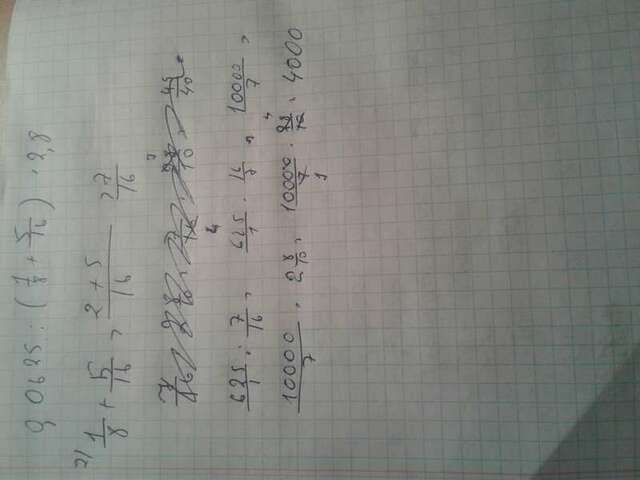 0,0625 : (1/8 + 5/16) · 2,8
1) 1/8 + 5/16 = (2 + 5)/16 = 7/16
625/1 : 7/16 = 625/1 · 16/7 = 10000/7 =
10000/7 · 2 8/10 = 10000/7 · 28/10 = 4000